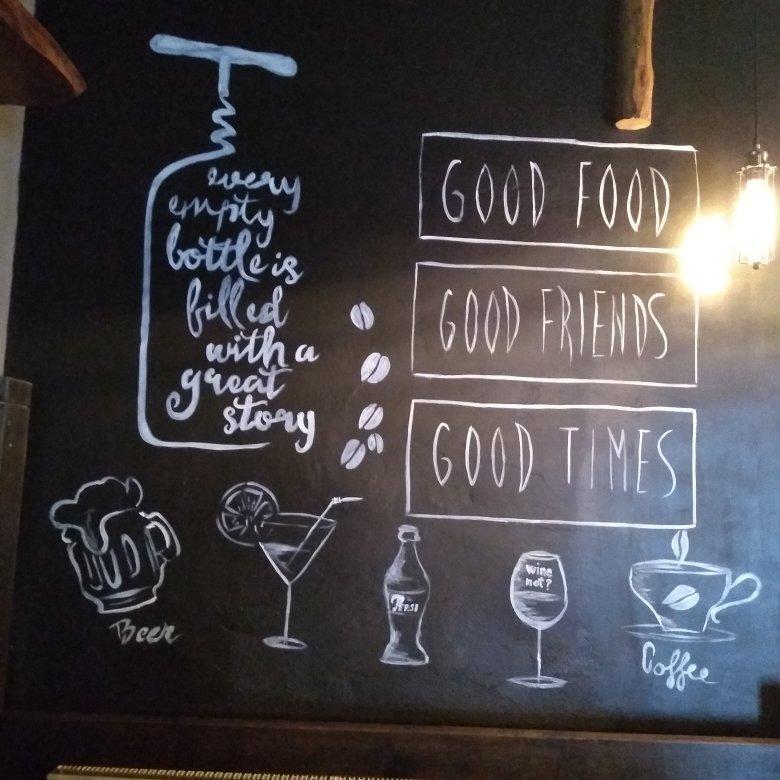 every
empty
bottle is
filled
with a
great
story
GOOD FOOD
GOOD FRIENDS
GOOD TIMES
Beer
PEPSI
wine
not?
Coffee